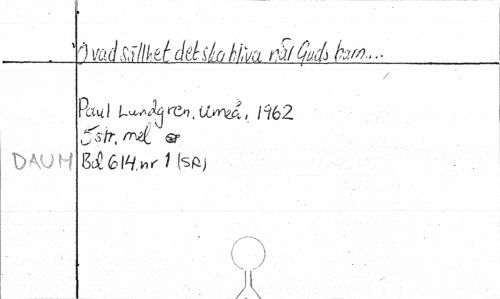 O vad sällhet det ska bliva när Guds barn...
Paul Lundgren, Umeå, 1962
5 str, mel
DAUM Bd 614, nr 1 (SR)